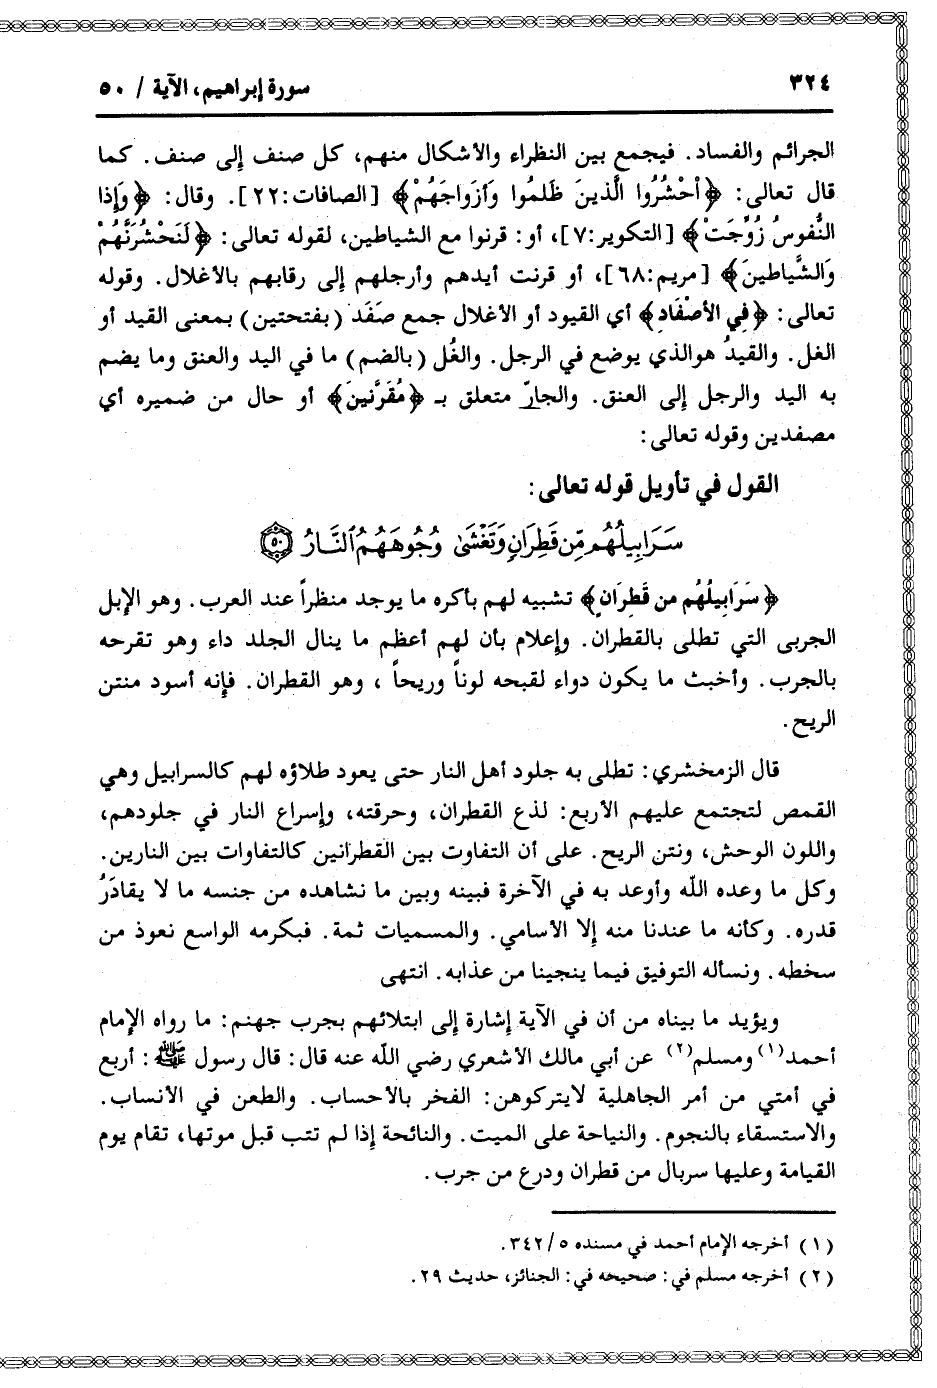 ٣٢٤
سورة إبراهيم، الآية / ٥٠
الجرائم والفساد. فيجمع بين النظراء والأشكال منهم، كل صنف إلى صنف. كما
قال تعالى: ﴿أحْشُرُوا الَّذينَ ظَلمُوا وَأَزوَاجَهُمْ﴾ [الصافات:٢٢]. وقال: ﴿وَإِذا
النُّفوسُ زُوِّجَتْ﴾ [التكوير:٧]، أو: قرنوا مع الشياطين، لقوله تعالى: ﴿لَنَحْشُرَنَّهُمْ
وَالشَّياطينَ﴾ [مريم:٦٨]، أو قرنت أيدهم وأرجلهم إلى رقابهم بالأغلال. وقوله
تعالى: ﴿فِي الأصْفَادِ﴾ أي القيود أو الأغلال جمع صفَد (بفتحتين) بمعنى القيد أو
الغل. والقيدُ هوالذي يوضع في الرجل. والغُل (بالضم) ما في اليد والعنق وما يضم
به اليد والرجل إلى العنق. والجارّ متعلق بـ ﴿مُقَرَّنينَ﴾ أو حال من ضميره أي
مصفدين وقوله تعالى:
القول في تأويل قوله تعالى:
سَرَابِيلُهُم مِّن قَطِرَانٍ وَتَغْشَىٰ وُجُوهَهُمُ ٱلنَّارُ ٥٠
﴿سَرَابِيلُهُم من قَطِرَان﴾ تشبيه لهم بأكره ما يوجد منظراً عند العرب. وهو الإبل
الجربى التي تطلى بالقطران. وإعلام بأن لهم أعظم ما ينال الجلد داء وهو تقرحه
بالجرب. وأخبث ما يكون دواء لقبحه لوناً وريحاً ، وهو القطران. فإنه أسود منتن
الريح.
قال الزمخشري: تطلى به جلود أهل النار حتى يعود طلاؤه لهم كالسرابيل وهي
القمص لتجتمع عليهم الأربع: لذع القطران، وحرقته، وإسراع النار في جلودهم،
واللون الوحش، ونتن الريح. على أن التفاوت بين القطرانين كالتفاوات بين النارين.
وكل ما وعده الله وأوعد به في الآخرة فبينه وبين ما نشاهده من جنسه ما لا يقادَرُ
قدره. وكأنه ما عندنا منه إلا الأسامي. والمسميات ثمة. فبكرمه الواسع نعوذ من
سخطه. ونسأله التوفيق فيما ينجينا من عذابه. انتهى
ويؤيد ما بيناه من أن في الآية إشارة إلى ابتلائهم بجرب جهنم: ما رواه الإمام
أحمد(١) ومسلم(٢) عن أبي مالك الأشعري رضي الله عنه قال: قال رسول ﷺ: أربع
في أمتي من أمر الجاهلية لايتركوهن: الفخر بالأحساب. والطعن في الأنساب.
والاستسقاء بالنجوم. والنياحة على الميت. والنائحة إذا لم تتب قبل موتها، تقام يوم
القيامة وعليها سربال من قطران ودرع من جرب.
(١) أخرجه الإمام أحمد في مسنده ٥/ ٣٤٢.
(٢) أخرجه مسلم في: صحيحه في: الجنائز، حديث ٢٩.